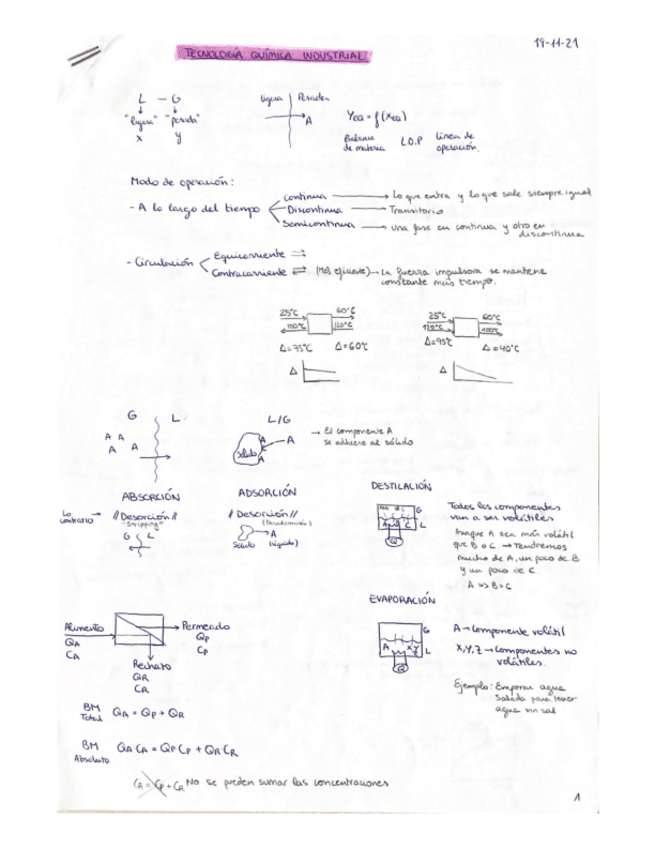 19-11-21
TECNOLOGÍA QUÍMICA INDUSTRIAL
L - G
"ligera" "pesada"
x y
ligera Pesada
A
YEQ = f(XEQ)
Balance de materia L.O.P línea de operación.
Modo de operación:
- A lo largo del tiempo
Continua → Lo que entra y lo que sale siempre igual
Discontinua → Transitorio
Semicontinua → una fase en continua y otro en discontinua
- Circulación
Equicorriente
Contracorriente (Más eficiente) → La fuerza impulsora se mantiene
constante más tiempo.
25°C 60°C
110°C
Δ=75°C Δ=60°C
25°C 60°C
100°C
Δ=95°C Δ=40°C
Δ
Δ
G L
A A
A A
L/G
Sólido
A
A
A
→ El componente A
se adhiere al sólido
ABSORCIÓN
ADSORCIÓN
DESTILACIÓN
Lo contrario → // Desorción //
"Stripping"
G L
// Desorción //
Sólido → A
(líquido)
G
L
Q
Todos los componentes
van a ser volátiles
Aunque A sea más volátil
que B o C → Tendremos
mucho de A, un poco de B
y un poco de C
A >> B > C
EVAPORACIÓN
G
A X Y Z L
Q
A → Componente volátil
X,Y,Z → Componentes no
volátiles.
Ejemplo: Evaporar agua
salada para tener
agua sin sal
Alimento
QA
CA
Permeado
QP
CP
Rechazo
QR
CR
BM Total QA = QP + QR
BM Absoluto QA CA = QP CP + QR CR
CA = CP + CR No se pueden sumar las concentraciones
1